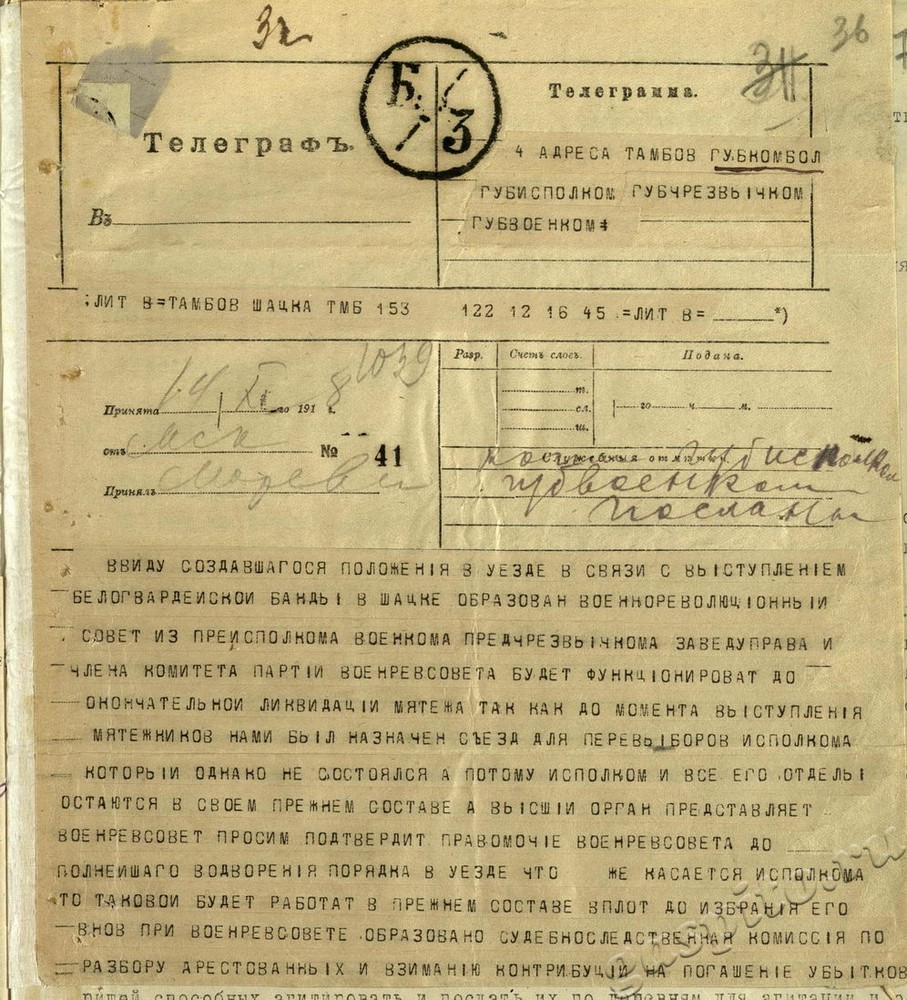 32
36
34
Б. 3
Телеграфъ.
Телеграмма.
4 АДРЕСА ТАМБОВ ГУБКОМБОЛ
ГУБИСПОЛКОМ ГУБЧРЕЗВЫЧКОМ
Въ
ГУБВОЕНКОМ=
ЛИТ В=ТАМБОВ ШАЦКА ТМБ 153 122 12 16 45 =ЛИТ В= *)
1039
Разр. Счетъ словъ. Подана.
Принята 14/XI го 1918 г.
т.
сл.
ш.
го ч. м.
отъ Мск № 41
Служебныя отмѣтки
Принялъ
губисполком
губвоенком
посланы
ВВИДУ СОЗДАВШАГОСЯ ПОЛОЖЕНІЯ В УЕЗДЕ В СВЯЗИ С ВЫСТУПЛЕНІЕМ
БЕЛОГВАРДЕИСКОИ БАНДЫ В ШАЦКЕ ОБРАЗОВАН ВОЕННОРЕВОЛЮЦІОННЫИ
СОВЕТ ИЗ ПРЕИСПОЛКОМА ВОЕНКОМА ПРЕДЧРЕЗВЫЧКОМА ЗАВЕДУПРАВА И
ЧЛЕНА КОМИТЕТА ПАРТІИ ВОЕНРЕВСОВЕТА БУДЕТ ФУНКЦІОНИРОВАТ ДО
ОКОНЧАТЕЛЬНОИ ЛИКВИДАЦІИ МЯТЕЖА ТАК КАК ДО МОМЕНТА ВЫСТУПЛЕНІЯ
МЯТЕЖНИКОВ НАМИ БЫЛ НАЗНАЧЕН СЪЕЗД ДЛЯ ПЕРЕВЫБОРОВ ИСПОЛКОМА
КОТОРЫИ ОДНАКО НЕ СОСТОЯЛСЯ А ПОТОМУ ИСПОЛКОМ И ВСЕ ЕГО ОТДЕЛЫ
ОСТАЮТСЯ В СВОЕМ ПРЕЖНЕМ СОСТАВЕ А ВЫСШІИ ОРГАН ПРЕДСТАВЛЯЕТ
ВОЕНРЕВСОВЕТ ПРОСИМ ПОДТВЕРДИТ ПРАВОМОЧІЕ ВОЕНРЕВСОВЕТА ДО
ПОЛНЕИШАГО ВОДВОРЕНІЯ ПОРЯДКА В УЕЗДЕ ЧТО ЖЕ КАСАЕТСЯ ИСПОЛКОМА
ТО ТАКОВОИ БУДЕТ РАБОТАТ В ПРЕЖНЕМ СОСТАВЕ ВПЛОТ ДО ИЗБРАНІЯ ЕГО
ВНОВ ПРИ ВОЕНРЕВСОВЕТЕ ОБРАЗОВАНО СУДЕБНОСЛЕДСТВЕННАЯ КОМИССІЯ ПО
РАЗБОРУ АРЕСТОВАННЫХ И ВЗИМАНІЮ КОНТРИБУЦІИ НА ПОГАШЕНИЕ УБЫТКОВ
способных агитировать и послать их по деревням для агитации